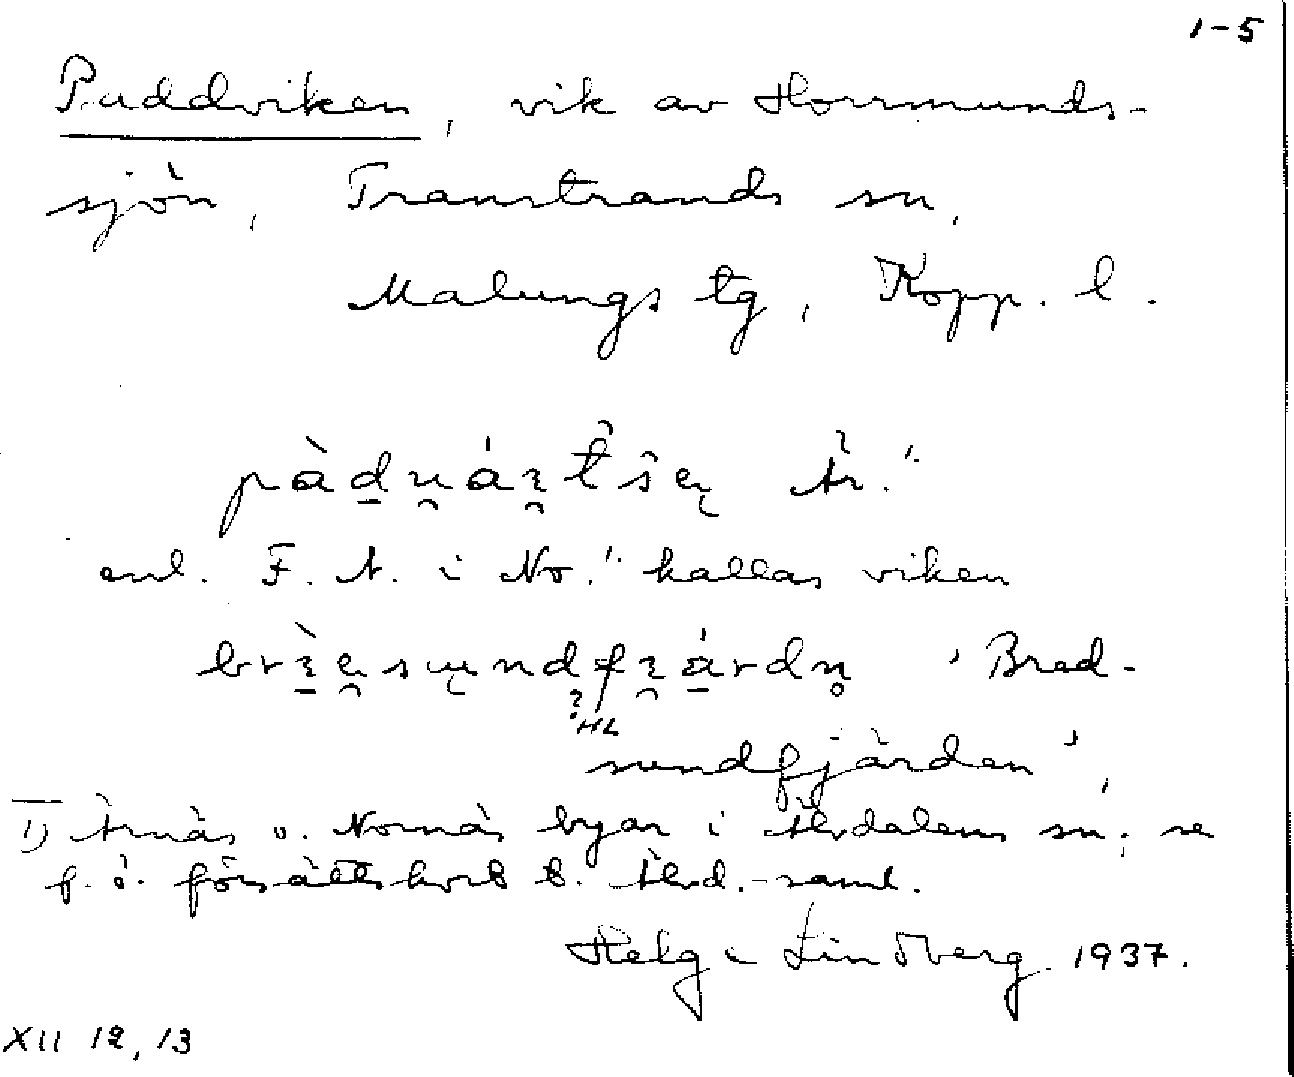 1-5
Paddviken, vik av Horrmunds-
sjön, Transtrands sn,
Malungs tg, Kopp. l.
Är.¹⁾
enl. F. A. i No.¹⁾ kallas viken
'Bred-
HL
sundfjärden',
1) Ärnäs o. Nornäs byar i Älvdalens sn; se
f. ö. försättskort t. Älvd.-saml.
Helge Lindberg 1937.
XII 12, 13